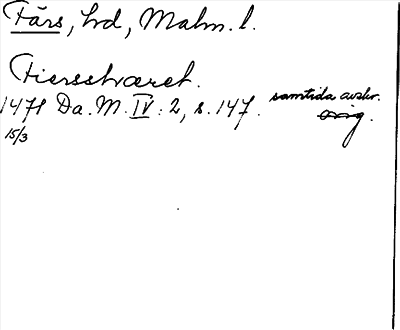 Färs, hd, Malm. l.
Fierssthæret.
1471 Da. M. IV: 2, s. 147. samtida avskr.
15/3 orig.